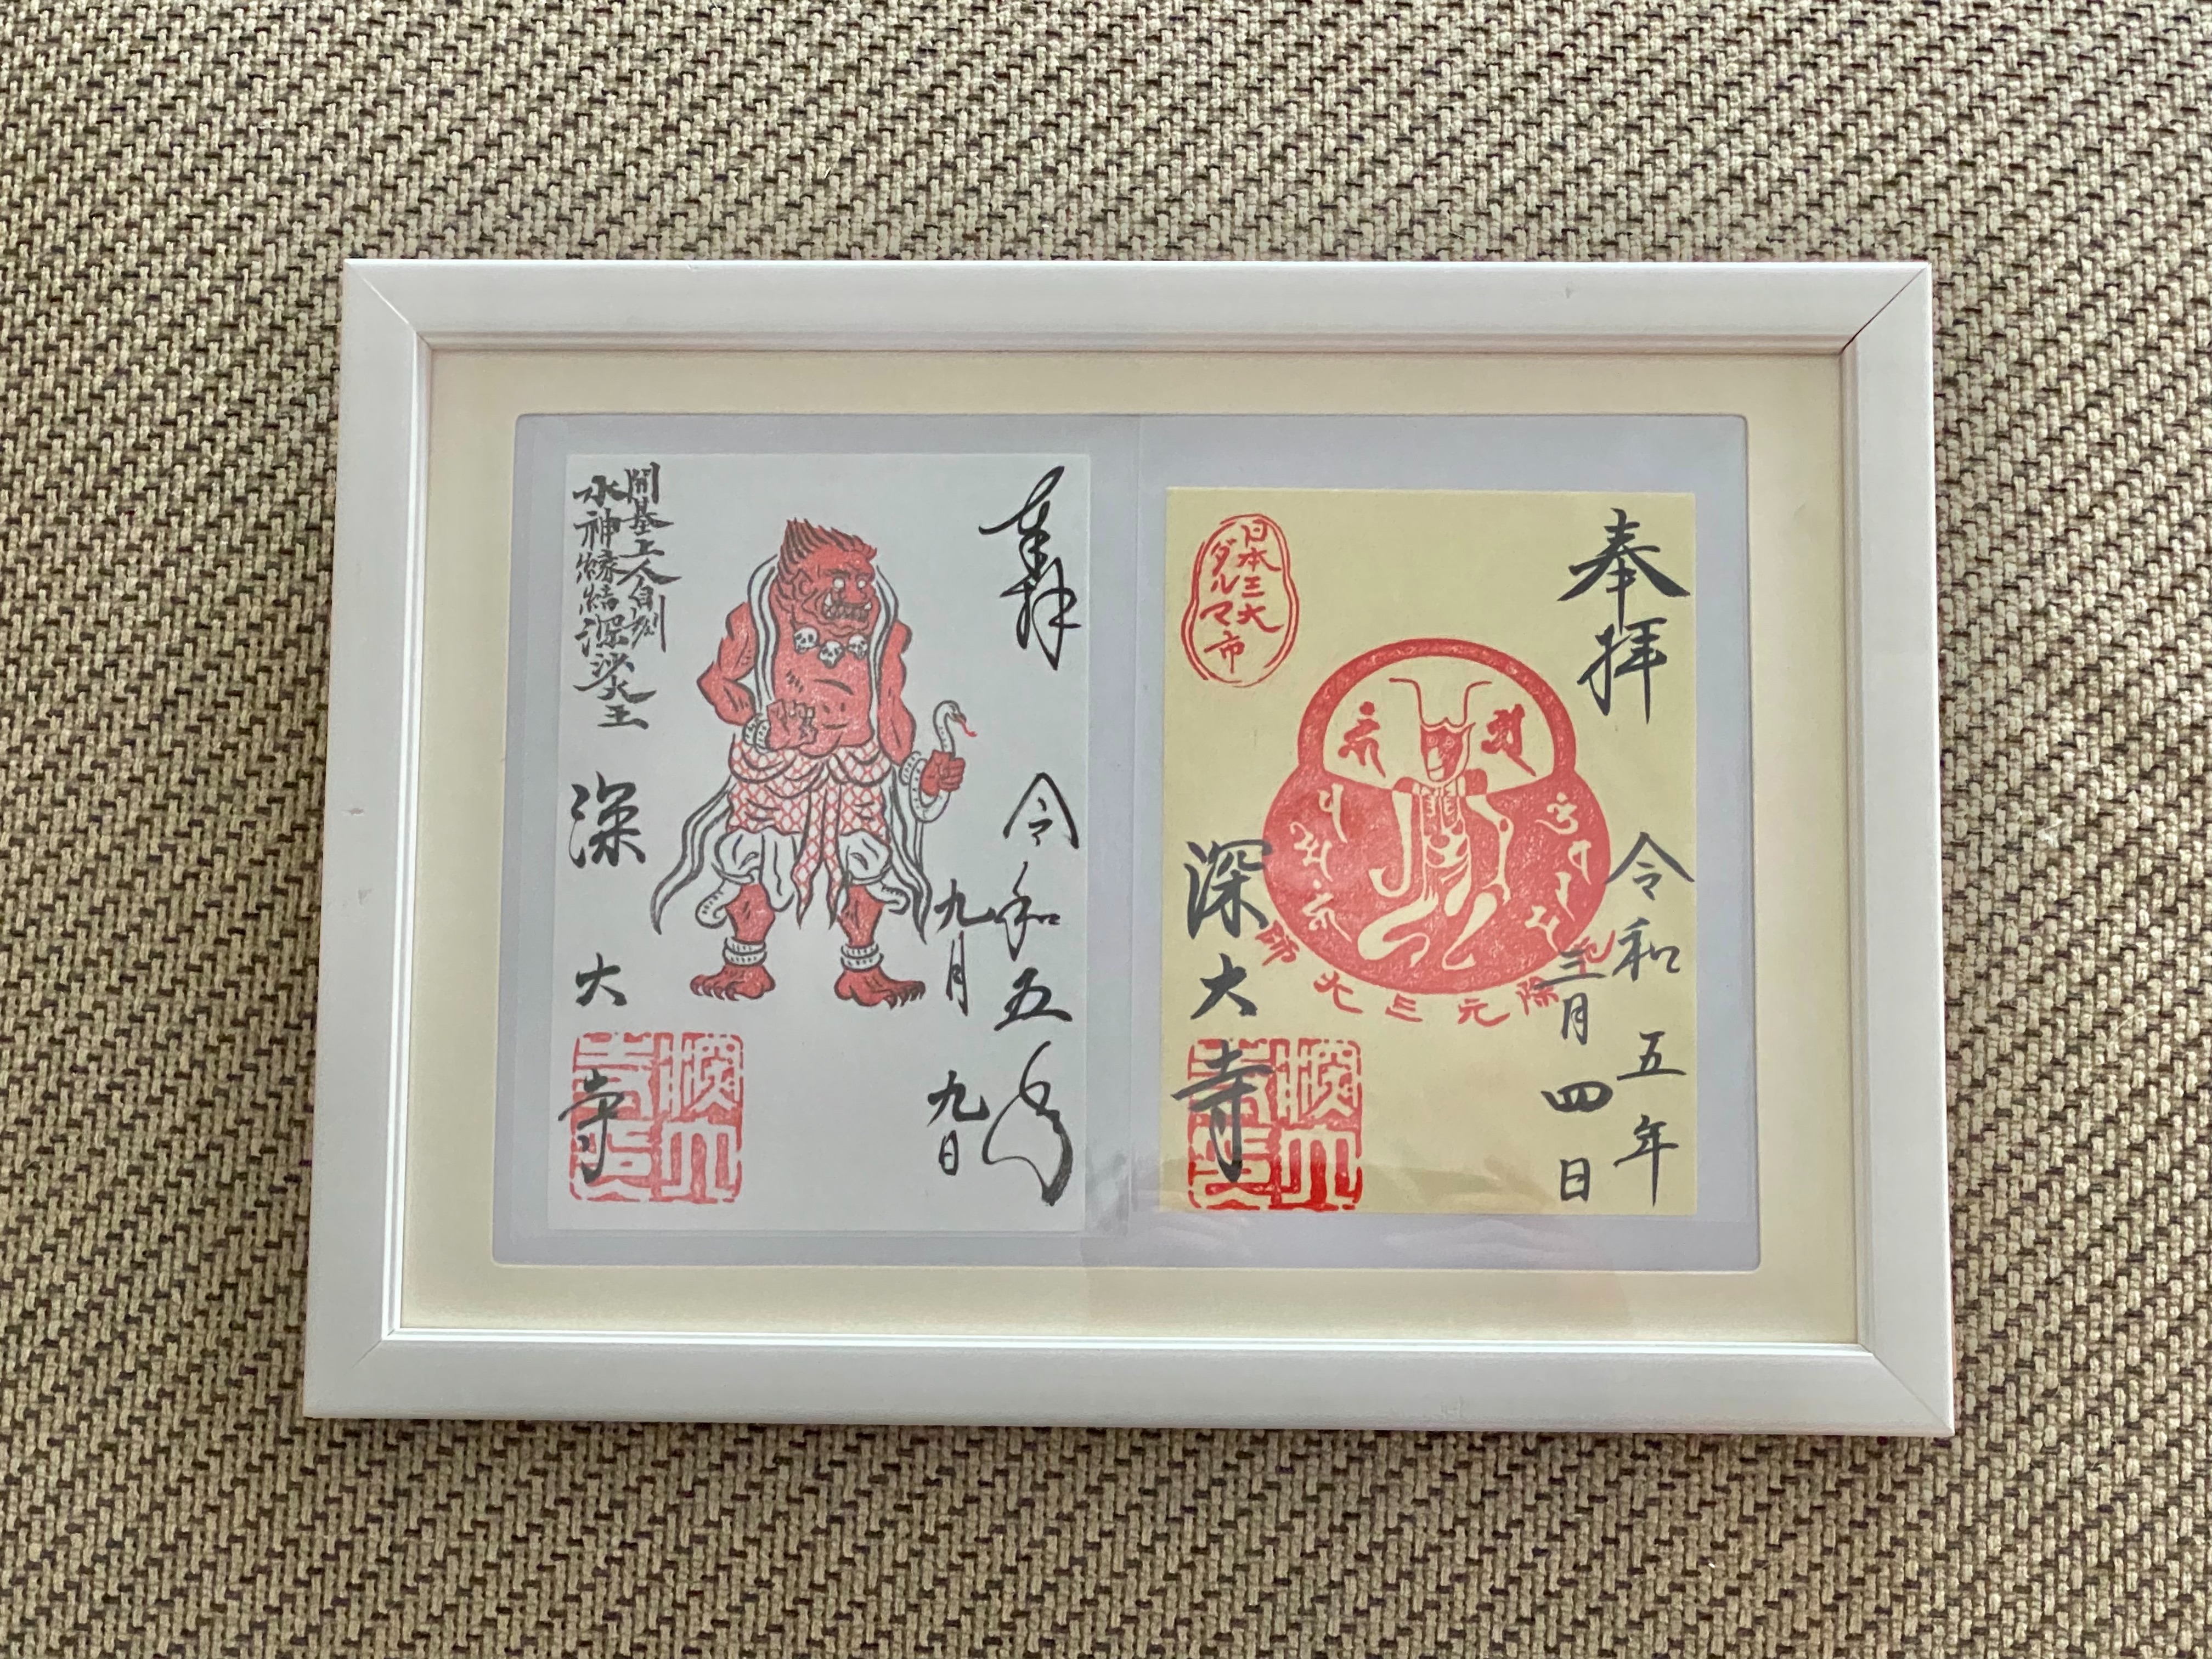 奉拝
令和五年
九月九日
開基上人自刻
水神縁結深沙大王
深大寺
奉拝
令和五年
三月四日
日本三大
ダルマ市
元三大師
深大寺